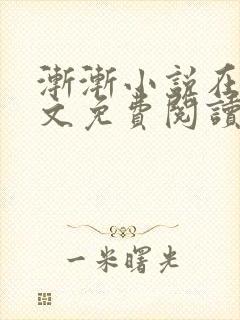 漸漸小說在
文免費閱讀
一米曙光